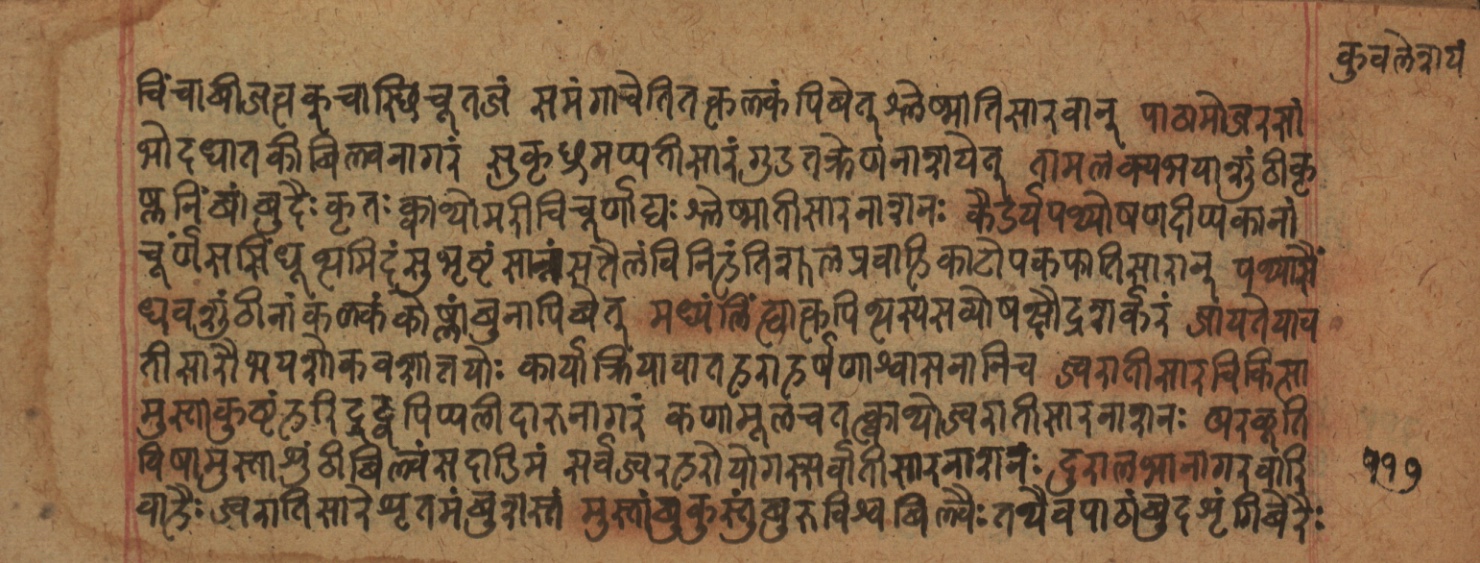 कुवलेत्रायं
चिंचाबीजत्वकूचास्थि चूतजं समंगाचेतितत्कल्कं पिबेत् श्लेष्मातिसारवान् पाठामोचरसां
भोदधातकीबिल्वनागरं सुकृछ्रमप्यतीसारं गुडतक्रेणनाशयेत् तामलक्यभयाशुंठीकृ
ष्णनिंबांबुदैः कृतः क्वाथोमरीचिचूर्णाद्यः श्लेष्मातीसारनाशनः कैडर्यपथ्योषणदीप्यकानां
चूर्णंससिंधूत्थमिदंसुभृष्टं सान्नंसतैलंविनिहंतिशूलप्रवाहिकाटोपकफातिसारान् पथ्यासैं
धवशुंठीनां कल्कंकोष्णांबुनापिबेत् मध्यंलिह्वाकपित्थस्यसव्योषक्षौद्रशर्करं जायतेयाच
तीसारौभयशोकवशात्तयोः कार्याक्रियावातहराहर्षणाश्वासनानिच ज्वरातीसारचिकित्सा
मुस्ताकुष्टंहरिद्रेद्वेपिप्पलीदारुनागरं कणामूलंचतत्क्वाथोज्वरातीसारनाशनः अरलूति
विषामुस्ताशुंठीबिल्वंसदाडिमं सर्वज्वरहरोयोगस्सर्वातीसारनाशनः दुरालभानागरवारि
वाहैः ज्वरातिसारेशृतमंबुशस्तं मुस्तांबुकुस्तुंबुरुविश्वबिल्वैः तथैवपाठांबुदशृंगिबेरैः
११७